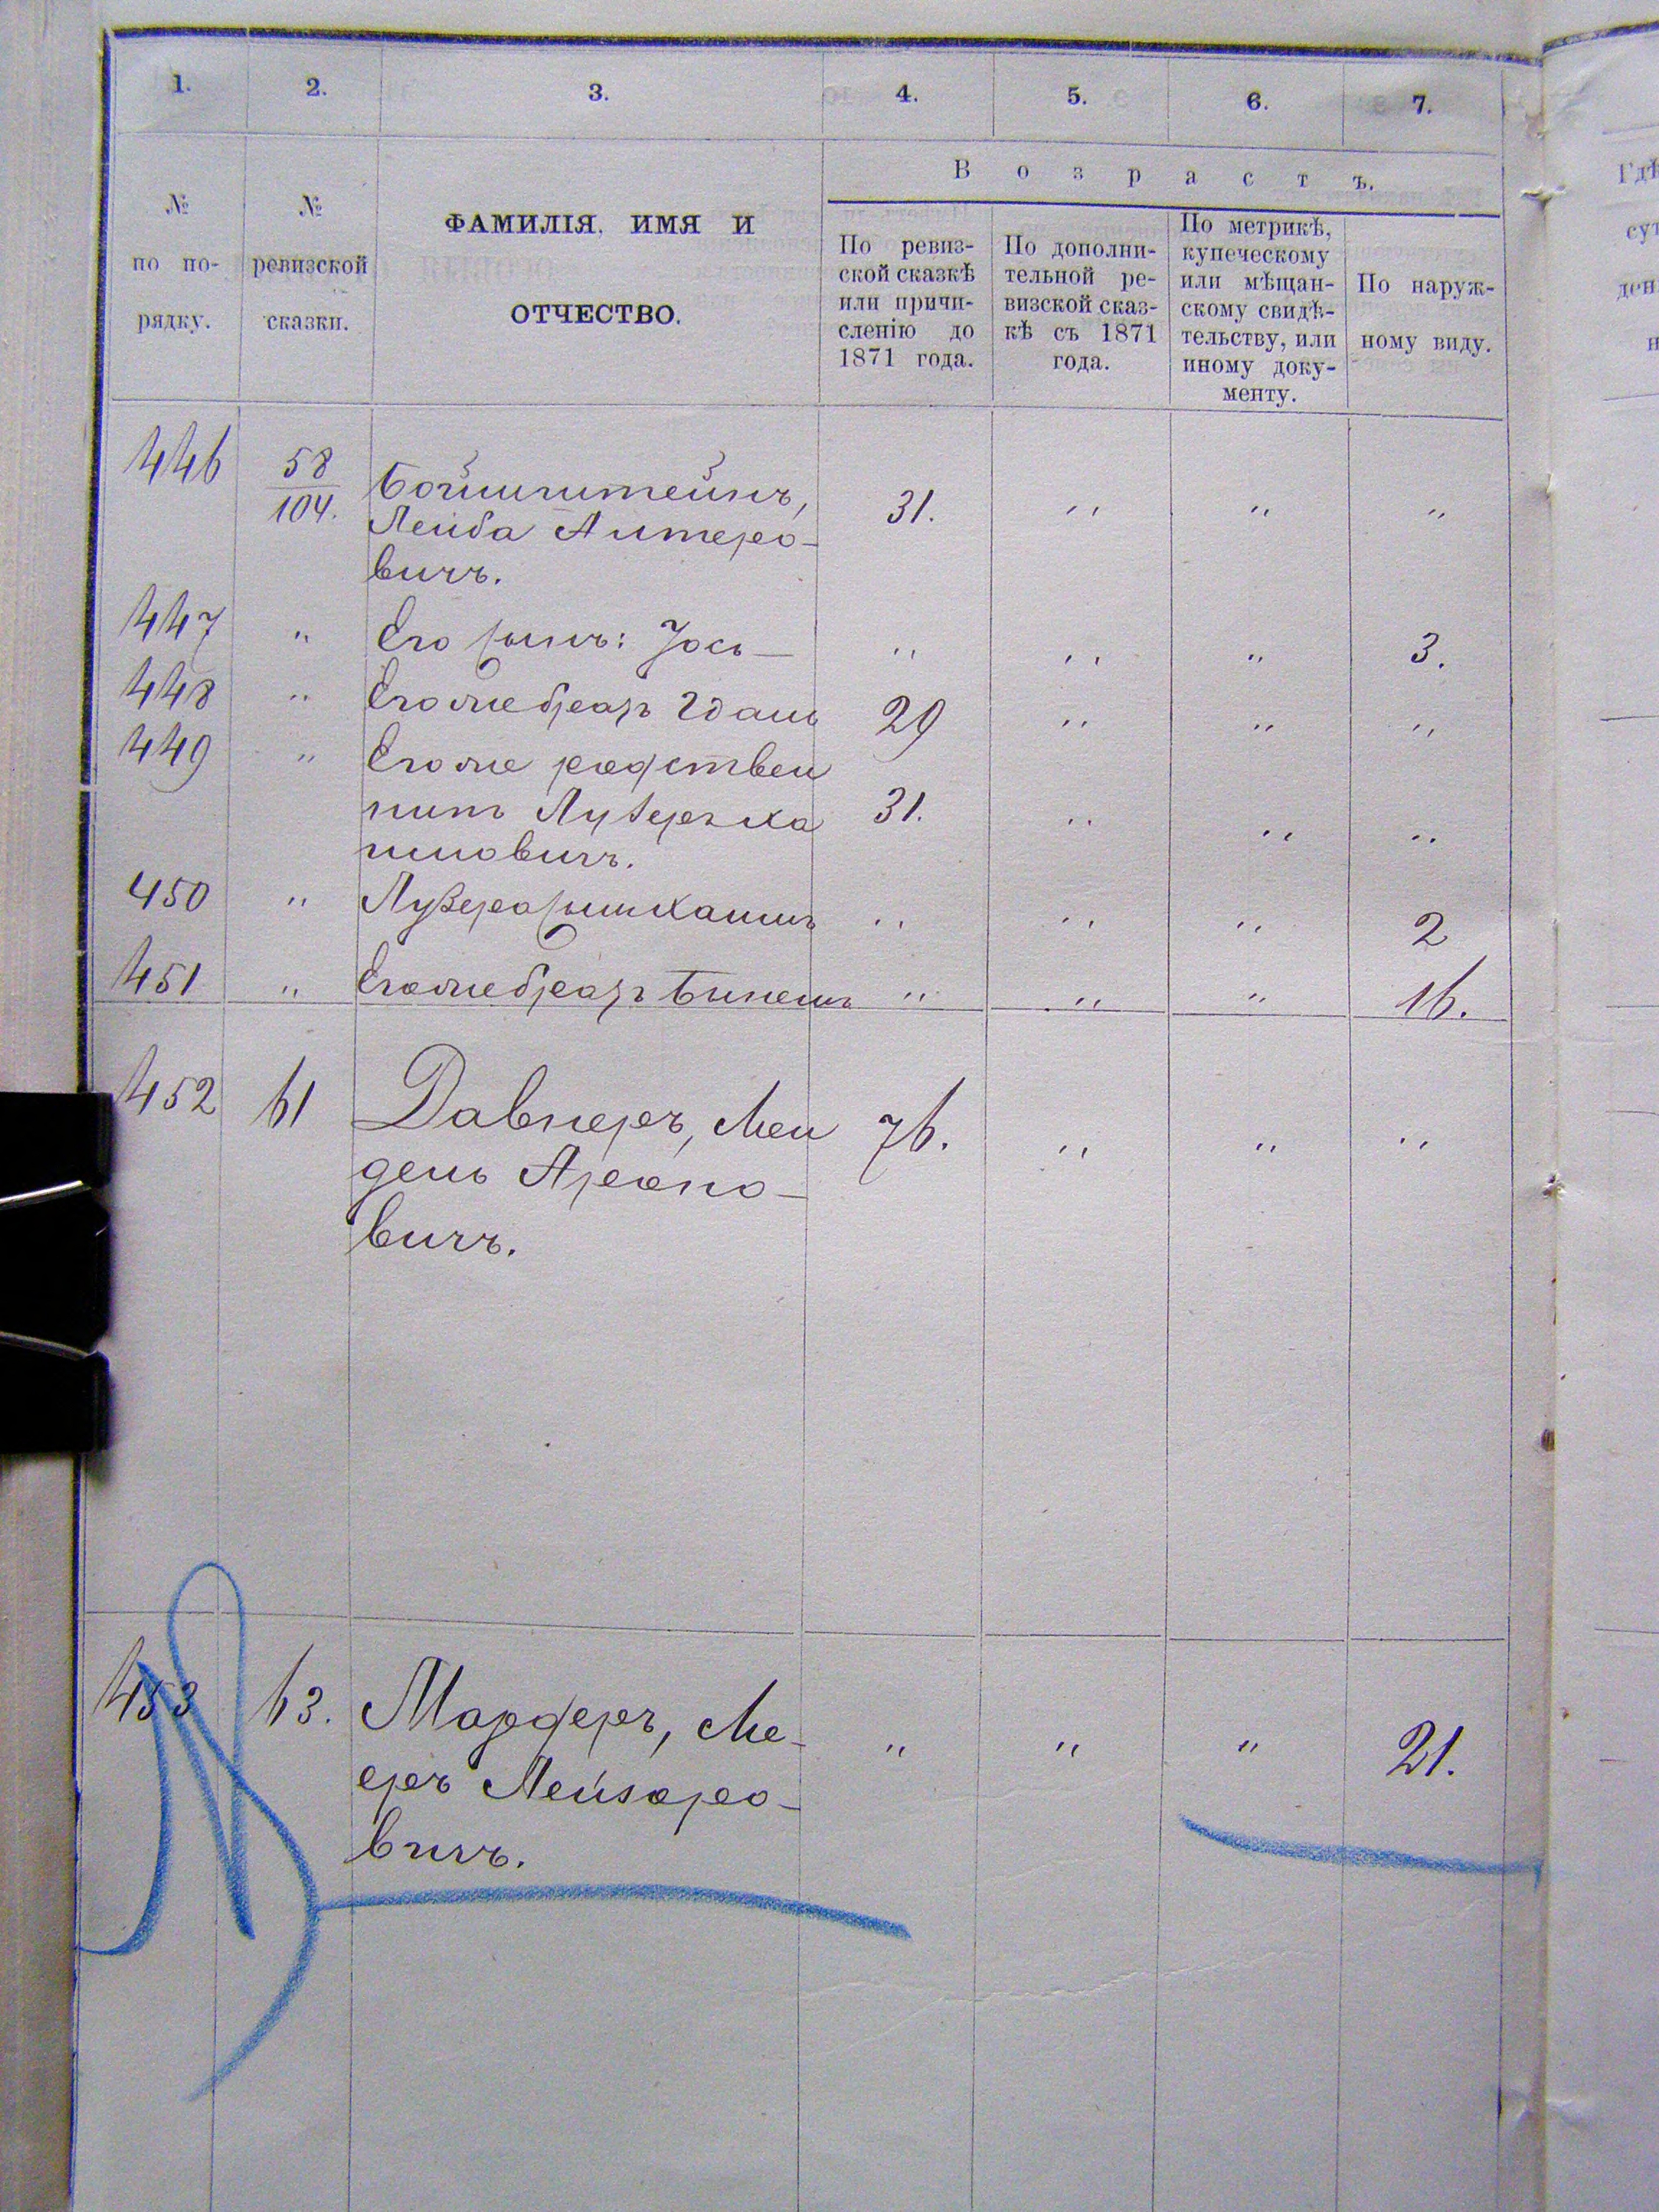 1. 2. 3. 4. 5. 6. 7.
№ по по- рядку.
№ ревизской сказки.
ФАМИЛІЯ, ИМЯ И
ОТЧЕСТВО.
Возрастъ.
По ревиз-
ской сказкѣ
или причи-
сленію до
1871 года.
По дополни-
тельной ре-
визской сказ-
кѣ съ 1871
года.
По метрикѣ,
купеческому
или мѣщан-
скому свидѣ-
тельству, или
иному доку-
менту.
По наруж-
ному виду.
446 58/104. Бойминштейнъ, 31. " " "
Лейба Алтеро-
вичъ.
447 " Его сынъ: Іось " " " 3.
448 " Егоже братъ Идаль 29 " " "
449 " Егоже родствен
никъ Лузеръ Ха 31. " " "
имовичъ.
450 " Лузера сынъ Хаимъ " " " 2
451 " Егоже братъ Бинемъ " " " 16.
452 61 Давнеръ, Мен 76. " " "
дель Ароно-
вичъ.
453 63. Мардеръ, Ме- " " " 21.
еръ Лейзоро-
вичъ.